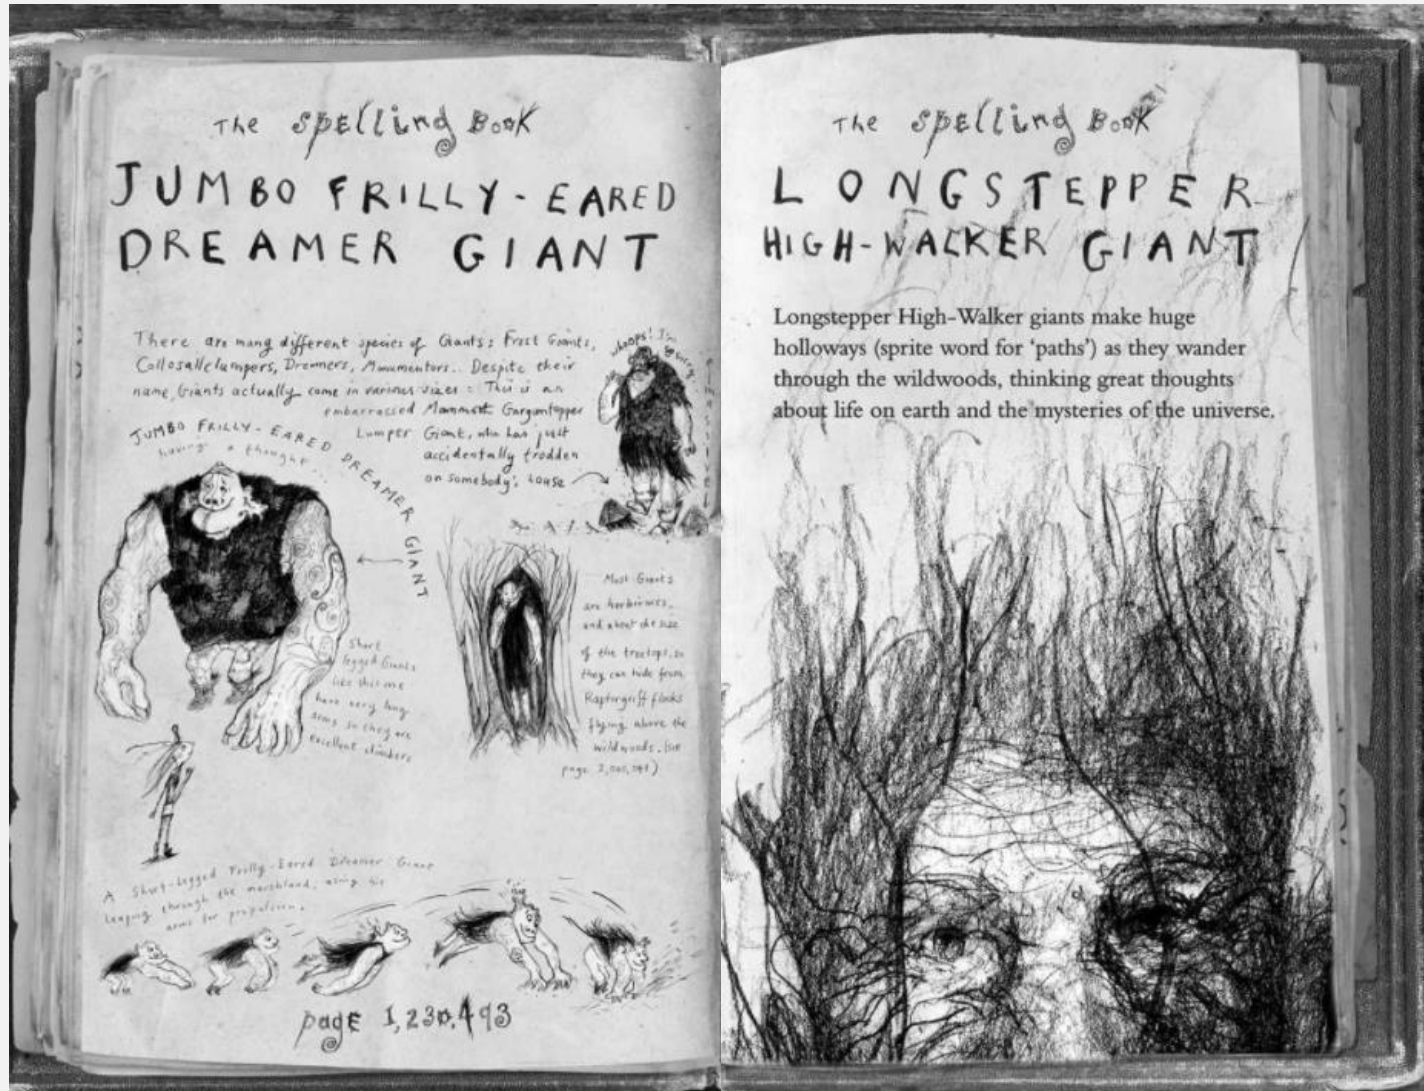 The Spelling Book
JUMBO FRILLY-EARED
DREAMER GIANT
There are many different species of Giants: Frost Giants,
Collosallclumpers, Dreamers, Monumentors.. Despite their
name, Giants actually come in various sizes: This is an
embarrassed Mammoth Gargantopper
Lumper Giant, who has just
accidentally trodden
on somebody's house
whoops! I'm
JUMBO FRILLY-EARED DREAMER GIANT
having a thought...
Short
legged Giants
like this one
have very long
arms so they are
excellent climbers
Most Giants
are herbivores,
and about the size
of the treetops, so
they can hide from
Raptorgriff flocks
flying above the
wildwoods. (see
page
A Short-legged Frilly-Eared Dreamer Giant
leaping through the marshland, using his
arms for propulsion.
page 1,230,493
The Spelling Book
LONGSTEPPER
HIGH-WALKER GIANT
Longstepper High-Walker giants make huge
holloways (sprite word for ‘paths’) as they wander
through the wildwoods, thinking great thoughts
about life on earth and the mysteries of the universe.